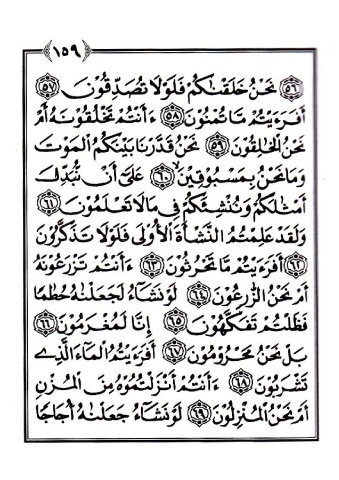 ١٥٩
٥٦ نَحْنُ خَلَقْنٰكُمْ فَلَوْلَا تُصَدِّقُوْنَ ٥٧
اَفَرَءَيْتُمْ مَّا تُمْنُوْنَ ٥٨ ءَاَنْتُمْ تَخْلُقُوْنَهٗٓ اَمْ
نَحْنُ الْخٰلِقُوْنَ ٥٩ نَحْنُ قَدَّرْنَا بَيْنَكُمُ الْمَوْتَ
وَمَا نَحْنُ بِمَسْبُوْقِيْنَۙ ٦٠ عَلٰٓى اَنْ نُّبَدِّلَ
اَمْثَالَكُمْ وَنُنْشِئَكُمْ فِيْ مَا لَا تَعْلَمُوْنَ ٦١
وَلَقَدْ عَلِمْتُمُ النَّشْاَةَ الْاُوْلٰى فَلَوْلَا تَذَكَّرُوْنَ
٦٢ اَفَرَءَيْتُمْ مَّا تَحْرُثُوْنَ ٦٣ ءَاَنْتُمْ تَزْرَعُوْنَهٗٓ
اَمْ نَحْنُ الزّٰرِعُوْنَ ٦٤ لَوْ نَشَاۤءُ لَجَعَلْنٰهُ حُطَامًا
فَظَلْتُمْ تَفَكَّهُوْنَ ٦٥ اِنَّا لَمُغْرَمُوْنَ ٦٦
بَلْ نَحْنُ مَحْرُوْمُوْنَ ٦٧ اَفَرَءَيْتُمُ الْمَاۤءَ الَّذِيْ
تَشْرَبُوْنَ ٦٨ ءَاَنْتُمْ اَنْزَلْتُمُوْهُ مِنَ الْمُزْنِ
اَمْ نَحْنُ الْمُنْزِلُوْنَ ٦٩ لَوْ نَشَاۤءُ جَعَلْنٰهُ اُجَاجًا